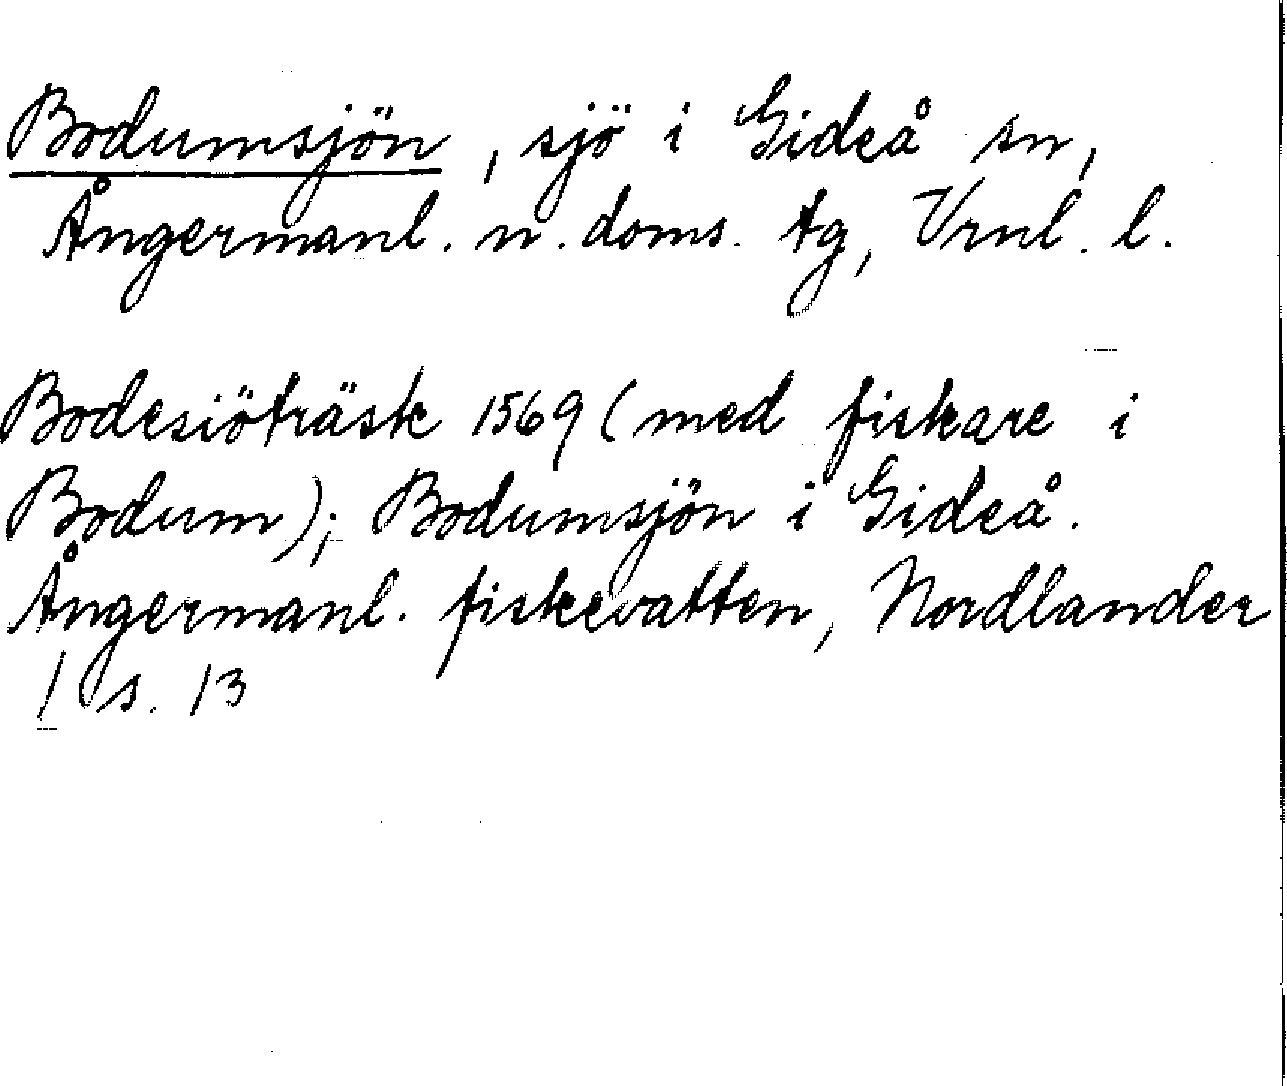 Bodumsjön, sjö i Gideå sn,
Ångermanl. n. doms. tg, Vrnl. l.
Bodesiöträsk 1569 (med fiskare i
Bodum); Bodumsjön i Gideå.
Ångermanl. fiskevatten, Nordlander
1 s. 13